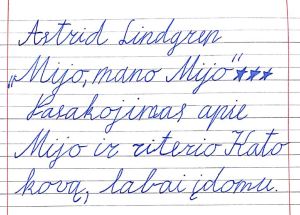 Astrid Lindgren
„Mijo, mano Mijo“ ★★★
Pasakojimas apie
Mijo ir riterio Kato
kovą, labai įdomu.